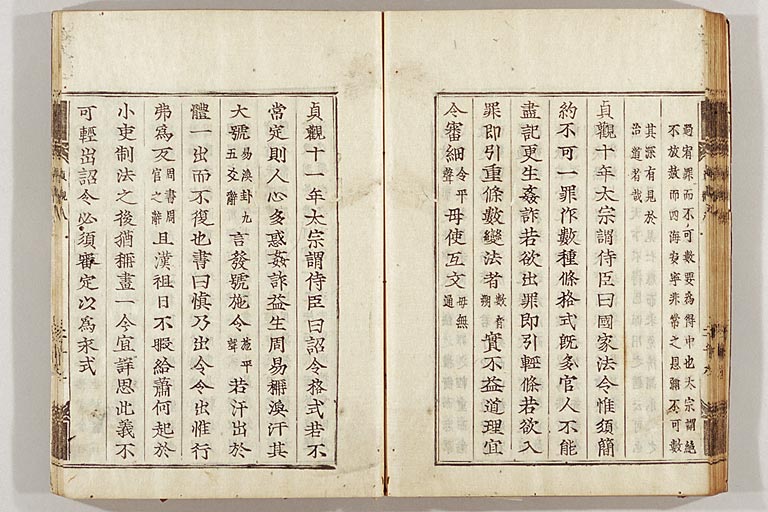 過宥罪而不可數要爲得中也太宗謂絶
不放赦而四海安寧非常之恩弥不可數
其深有見於
治道者哉
貞觀十年太宗謂侍臣曰國家法令惟須簡
約不可一罪作數種條格式旣多官人不能
盡記更生姦詐若欲出罪即引輕條若欲入
罪即引重條數變法者數音朔實不益道理宜
令審細令平聲毋使互交毋無通
貞觀十一年太宗謂侍臣曰詔令格式若不
常定則人心多惑姦詐益生周易稱渙汗其
大號易渙卦九五交辭言發號施令施平聲若汗出於
體一出而不復也書曰慎乃出令令出惟行
弗爲反周書周官之辭且漢祖日不暇給蕭何起於
小吏制法之後猶稱畫一今宜詳思此義不
可輕出詔令必須審定以爲永式